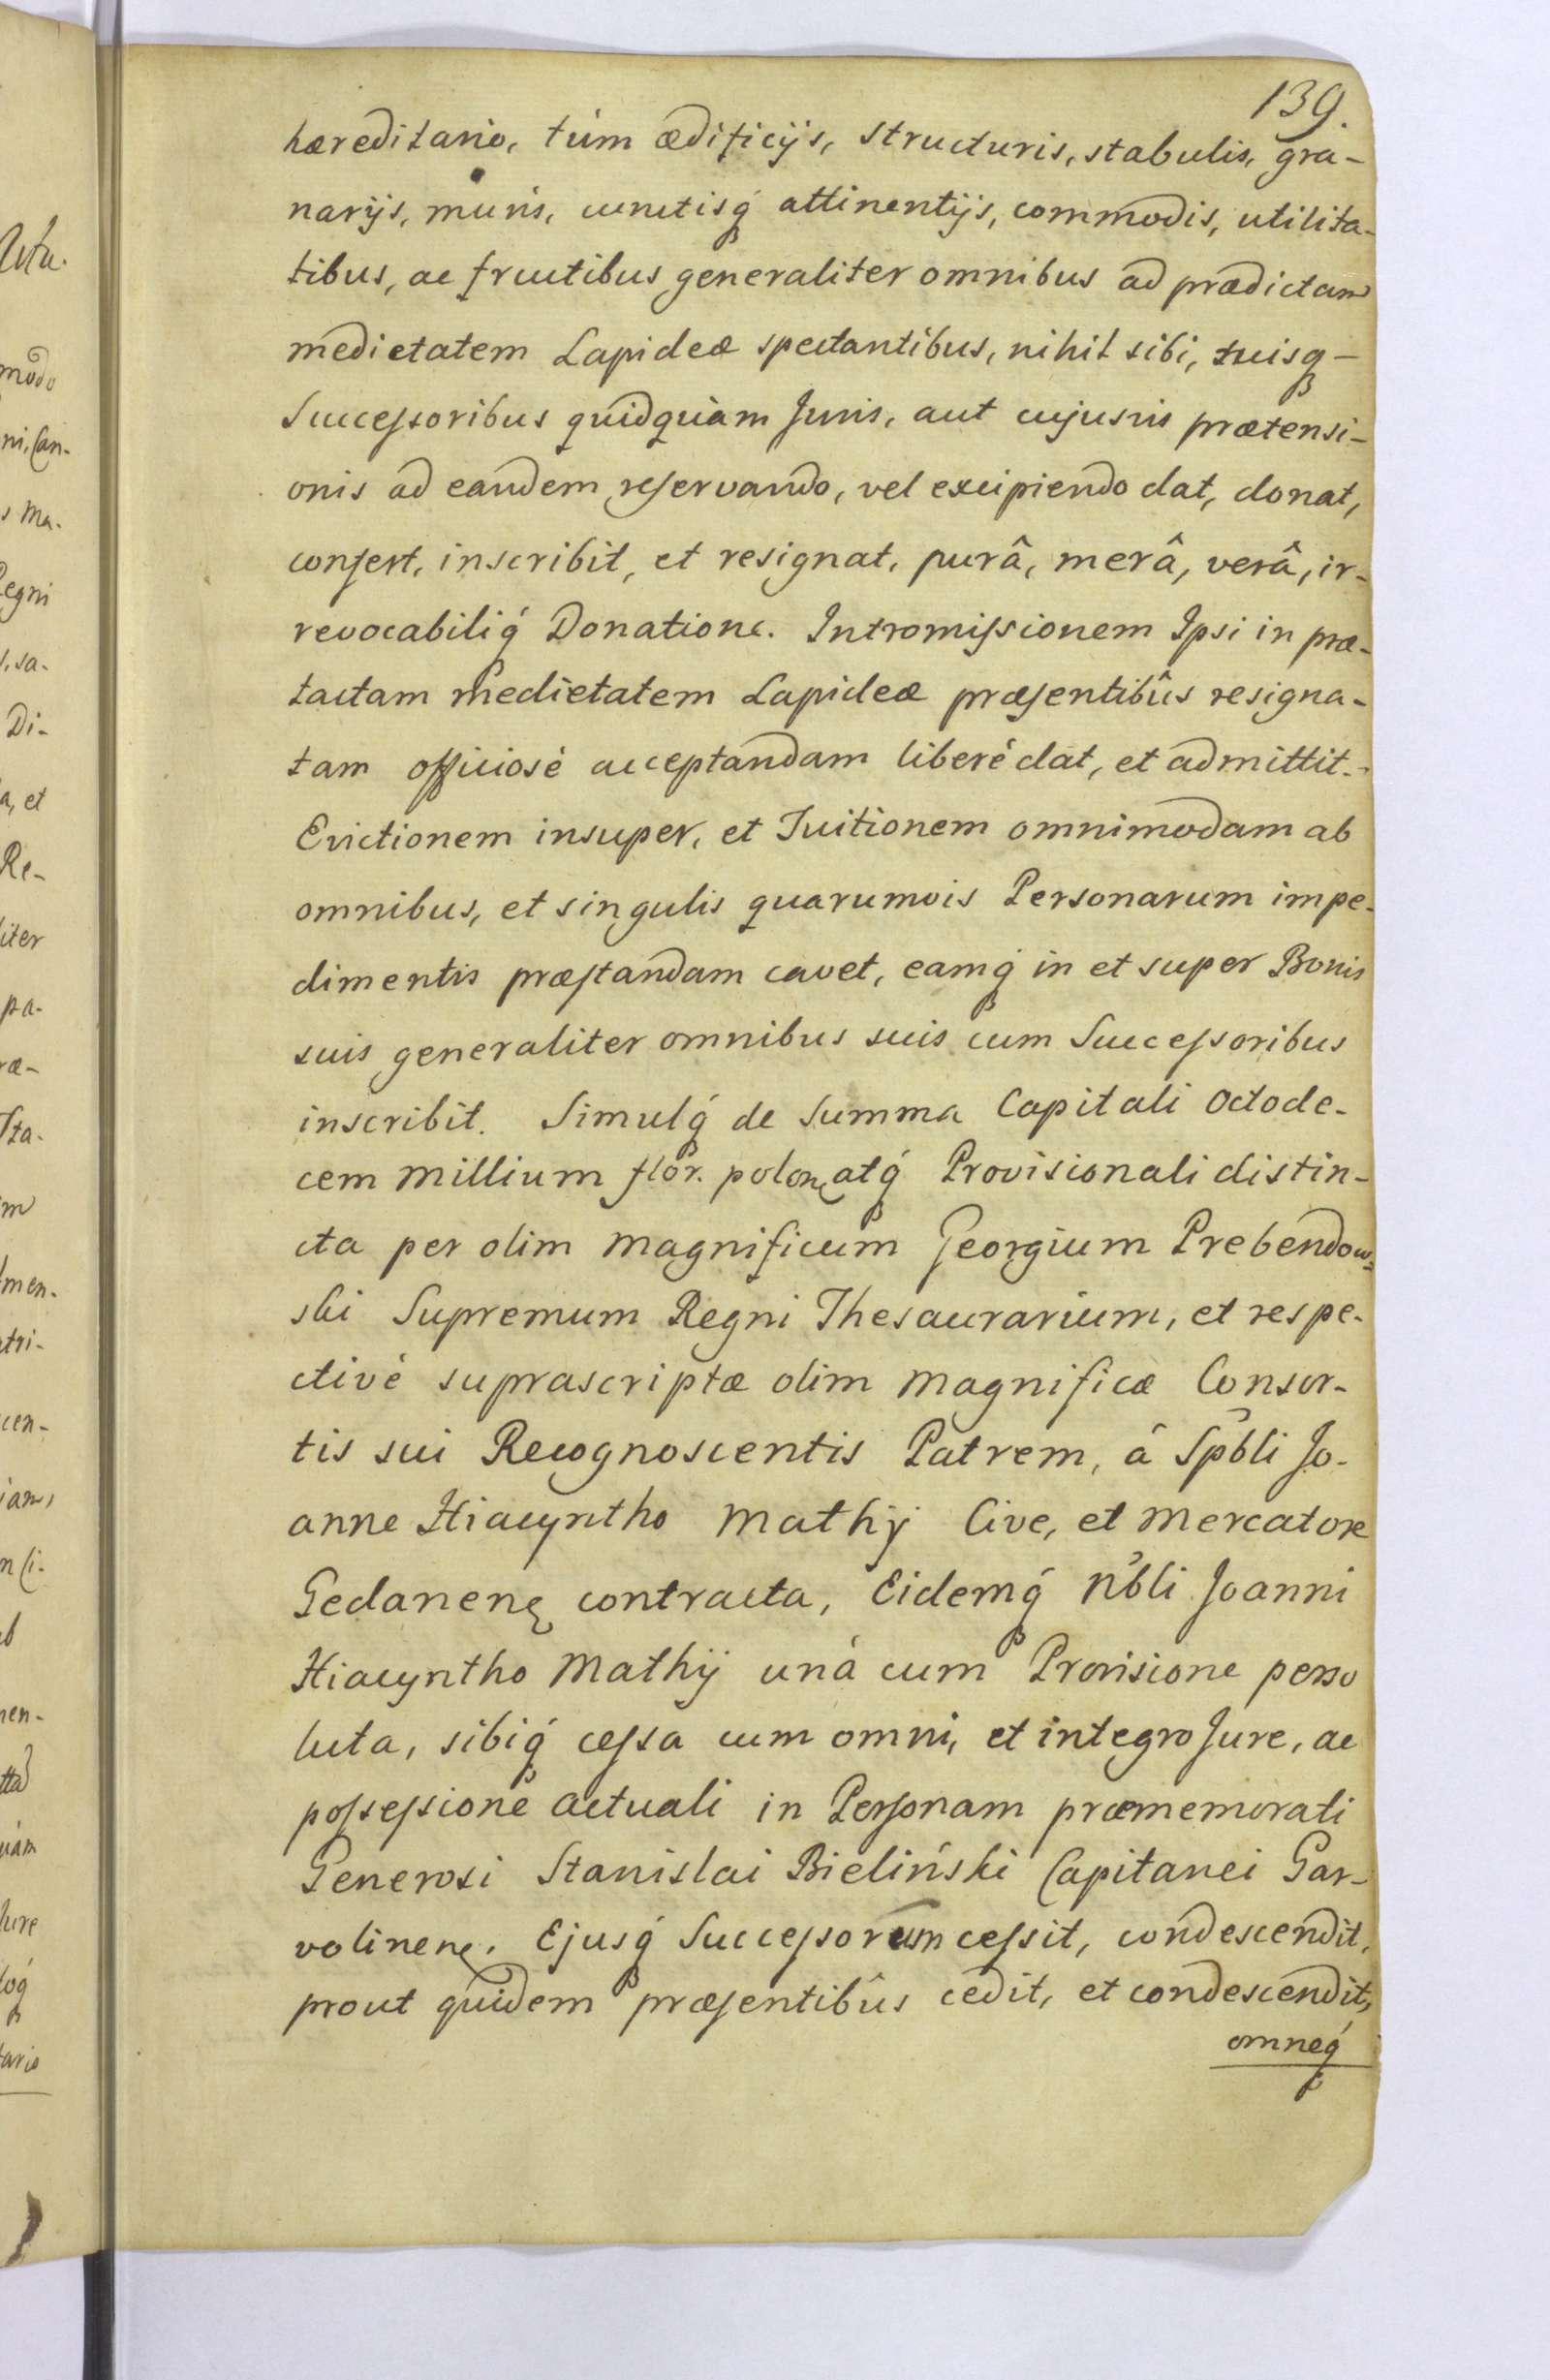 139.
hæreditario, tùm ædificijs, structuris, stabulis, gra-
narijs, muris, cunctisq́ attinentijs, commodis, utilita-
tibus, ac fructibus generaliter omnibus ad prædictam
medietatem Lapideæ spectantibus, nihil sibi, suisq-
Successoribus quidquàm Juris, aut cujusvis prætensi-
onis ad eandem reservando, vel excipiendo dat, donat,
confert, inscribit, et resignat, purâ, merâ, verâ, ir-
revocabiliq́ Donatione. Intromissionem Ipsi in præ-
tactam medietatem Lapideæ præsentibûs resigna-
tam officiosè acceptandam liberè dat, et admittit.
Evictionem insuper, et Tuitionem omnimodam ab
omnibus, et singulis quarumvis Personarum impe-
dimentis præstandam cavet, eamq́ in et super Bonis
suis generaliter omnibus suis cum Successoribus
inscribit. Simulq́ de Summa Capitali Octode-
cem millium flor. polon atq́ Provisionali distin-
cta per olim Magnificum Georgium Prebendow-
ski Supremum Regni Thesaurarium, et respe-
ctivè suprascriptæ olim Magnificæ Consor-
tis sui Recognoscentis Patrem, â Spbli Jo-
anne Hiacyntho Mathÿ Cive, et Mercatore
Gedanen contracta, Eidemq́ Nbli Joanni
Hiacyntho Mathÿ unà cum Provisione perso
luta, sibiq́ cessa cum omni, et integro Jure, ac
possessione actuali in Personam præmemorati
Generosi Stanislai Bieliński Capitanei Gar-
volinen. Ejusq́ Successorum cessit, condescendit,
prout quidem præsentibûs cedit, et condescendit,
omneq́